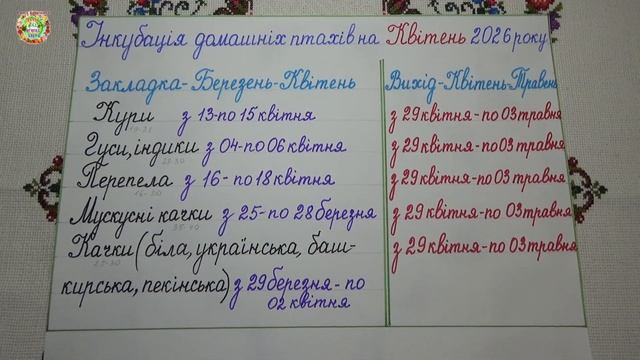 Інкубація домашніх птахів на Квітень 2026 року
Закладка-Березень-Квітень
Вихід-Квітень-Травень
Кури з 13-по 15 квітня
з 29 квітня-по 03 травня
Гуси, індики з 04-по 06 квітня
з 29 квітня-по 03 травня
Перепела з 16-по 18 квітня
з 29 квітня-по 03 травня
Мускусні качки з 25-по 28 березня
з 29 квітня-по 03 травня
Качки (біла, українська, баш-
з 29 квітня-по 03 травня
кирська, пекінська) з 29 березня-по
02 квітня